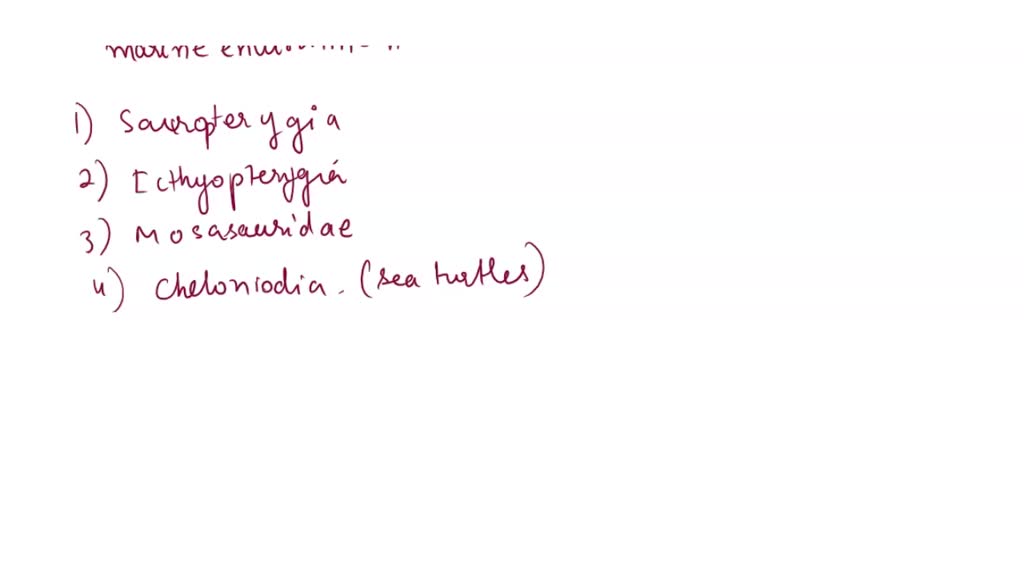 marine
1) Sauropterygia
2) Icthyopterygia
3) Mosasauridae
4) Cheloniodia. (sea turtles)